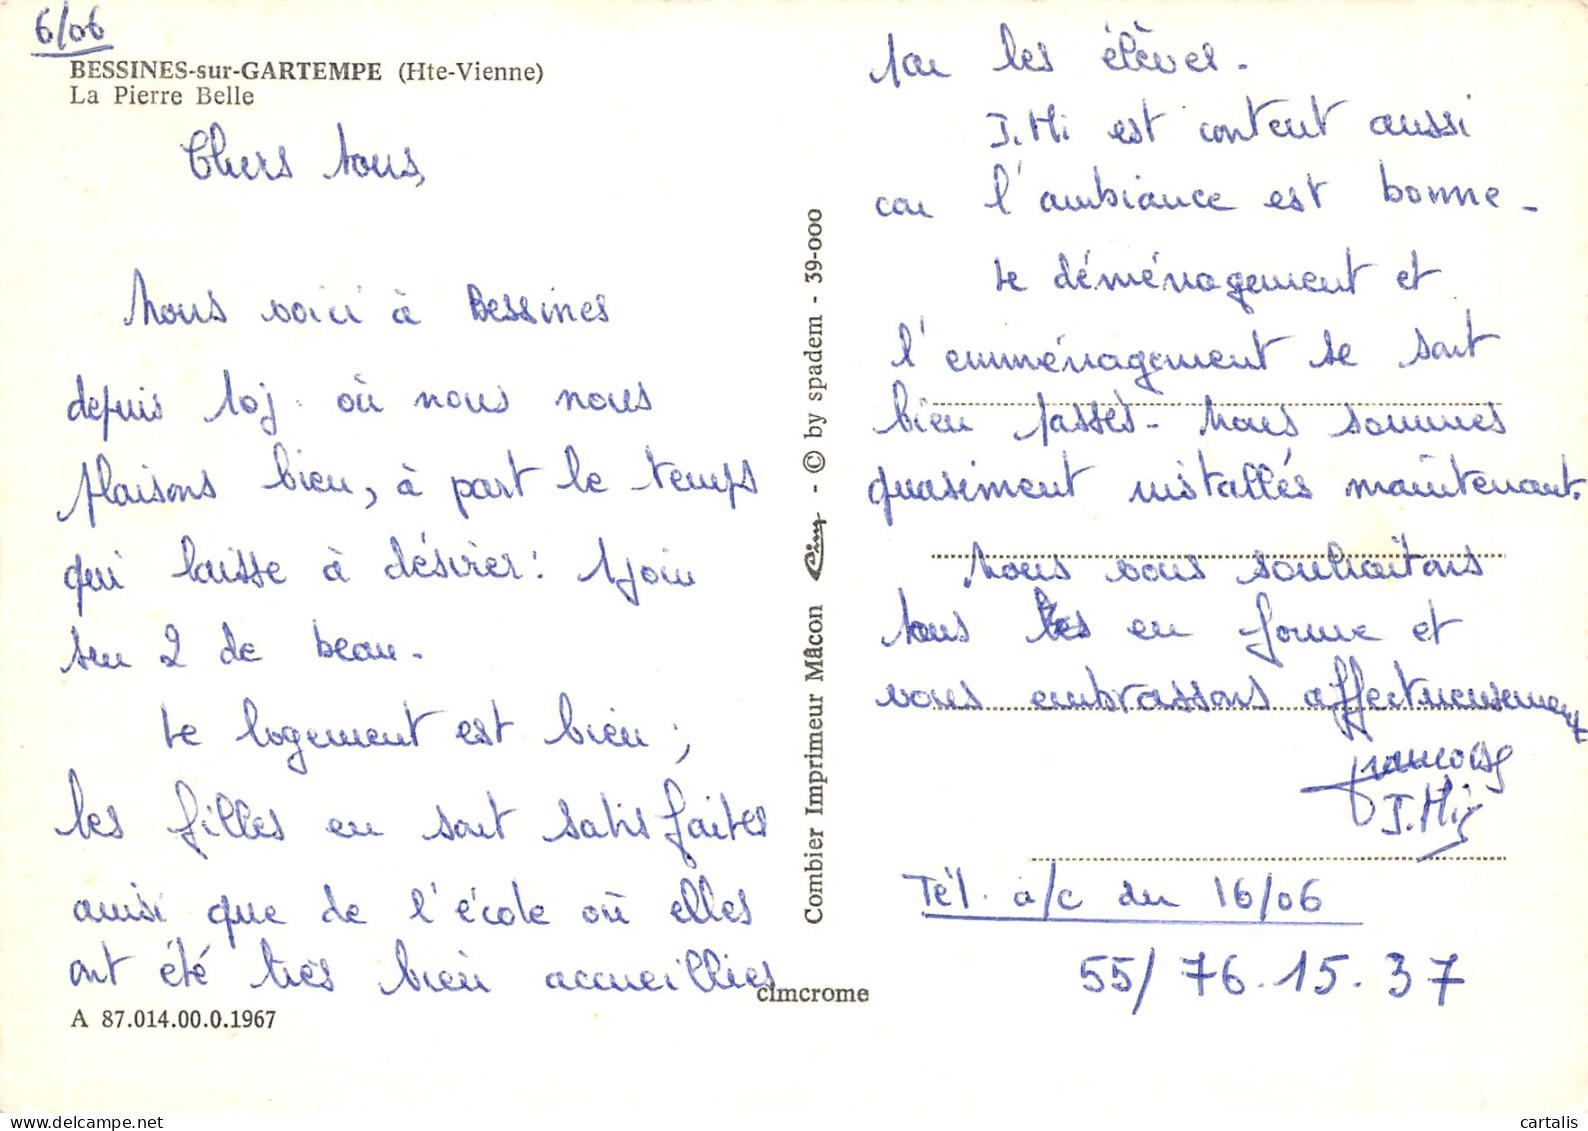 6/06
BESSINES-sur-GARTEMPE (Hte-Vienne)
La Pierre Belle
Chers tous,
Nous voici à Bessines
depuis 10j. où nous nous
plaisons bien, à part le temps
qui laisse à désirer: 1 jour
sur 2 de beau.
Le logement est bien;
les filles en sont satisfaites
ainsi que de l'école où elles
ont été très bien accueillies
A 87.014.00.0.1967
Combier Imprimeur Mâcon Cim - © by spadem - 39-000
cimcrome
par les élèves.
J.Mi est content aussi
car l'ambiance est bonne.
Le déménagement et
l'emménagement se sont
bien passés. Nous sommes
quasiment installés maintenant.
Nous vous souhaitons
tous en forme et
vous embrassons affectueusement
Françoise
J.Mi
Tél. à/c du 16/06
55/76.15.37
cartalis
www.delcampe.net